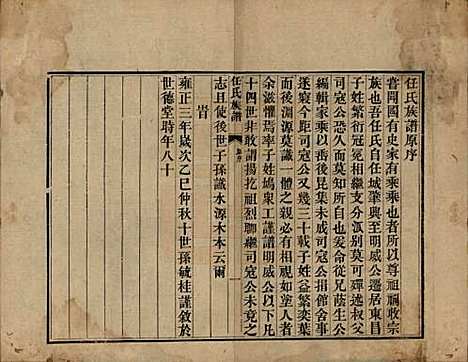 任氏族譜原序
嘗聞國有史家有乘乘也者所以尊祖禰收宗
族也吾任氏自任城肇興至明威公遷居東昌
子姓繁衍冠冕相繼支分派别莫可殫述叔父
司寇公恐久而無所知也爰命從兄蔭生公
編輯家乘以垂後昆集未成司寇公捐館舍事
遂寢今距司寇公幾三十載子姓益繁奕葉
而後淵源莫識一體之親必有相視如塗人者
余滋懼焉率子姓鳩衆工謹譜明威公以下凡
十四世非敢謂揚扢祖烈聊繼司寇公未竟之
任氏族譜
志且使後世子孫識水源木本云爾
旹
雍正三年歲次乙巳仲秋十世孫毓桂謹敘於
世德堂時年八十